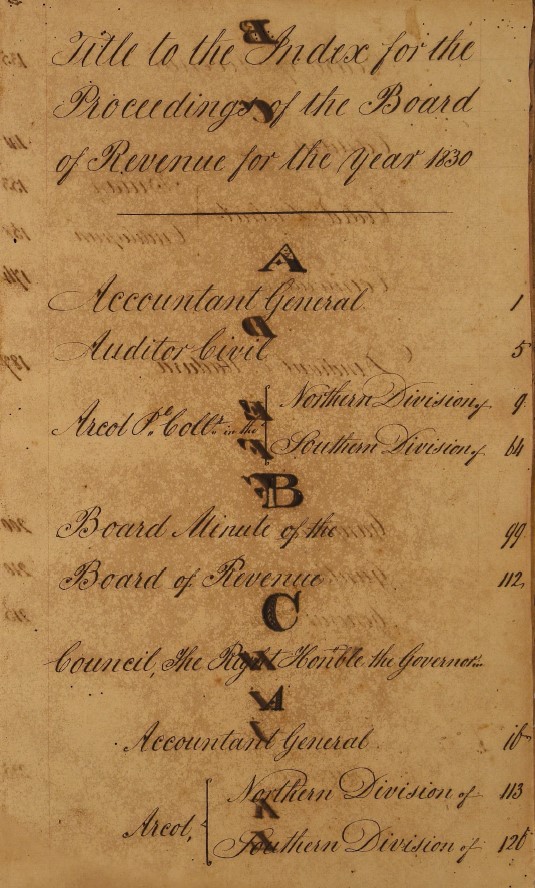 Title to the Index for the
Proceedings of the Board
of Revenue for the Year 1830
A
Accountant General 1
Auditor Civil 5
Arcot Pl. Collr. in the Northern Division of 9
Southern Division of 64
B
Board Minute of the 99
Board of Revenue 112
C
Council, The Right Honble the Governor in
Accountant General ib
Arcot, Northern Division of 113
Southern Division of